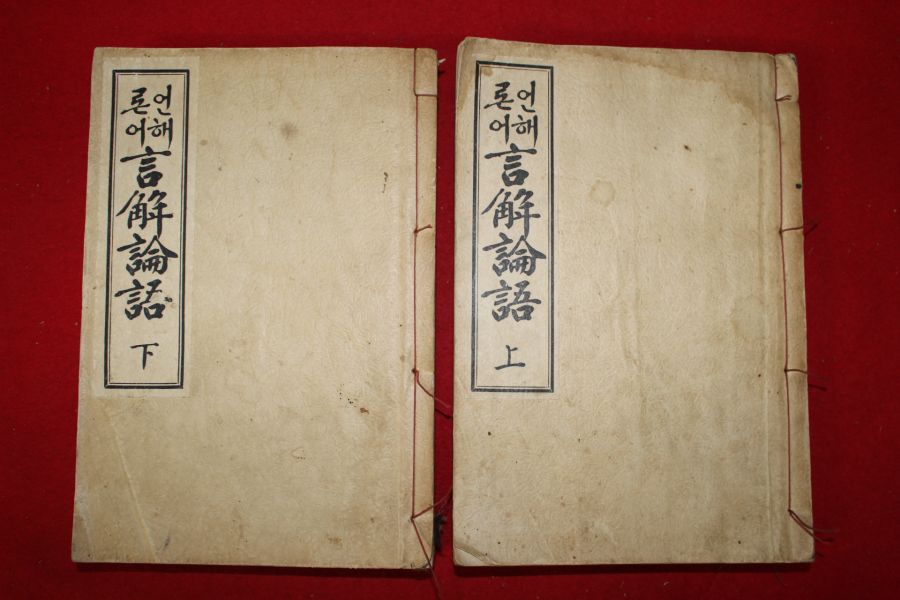 언해
론어
言解論語
上
언해
론어
言解論語
下